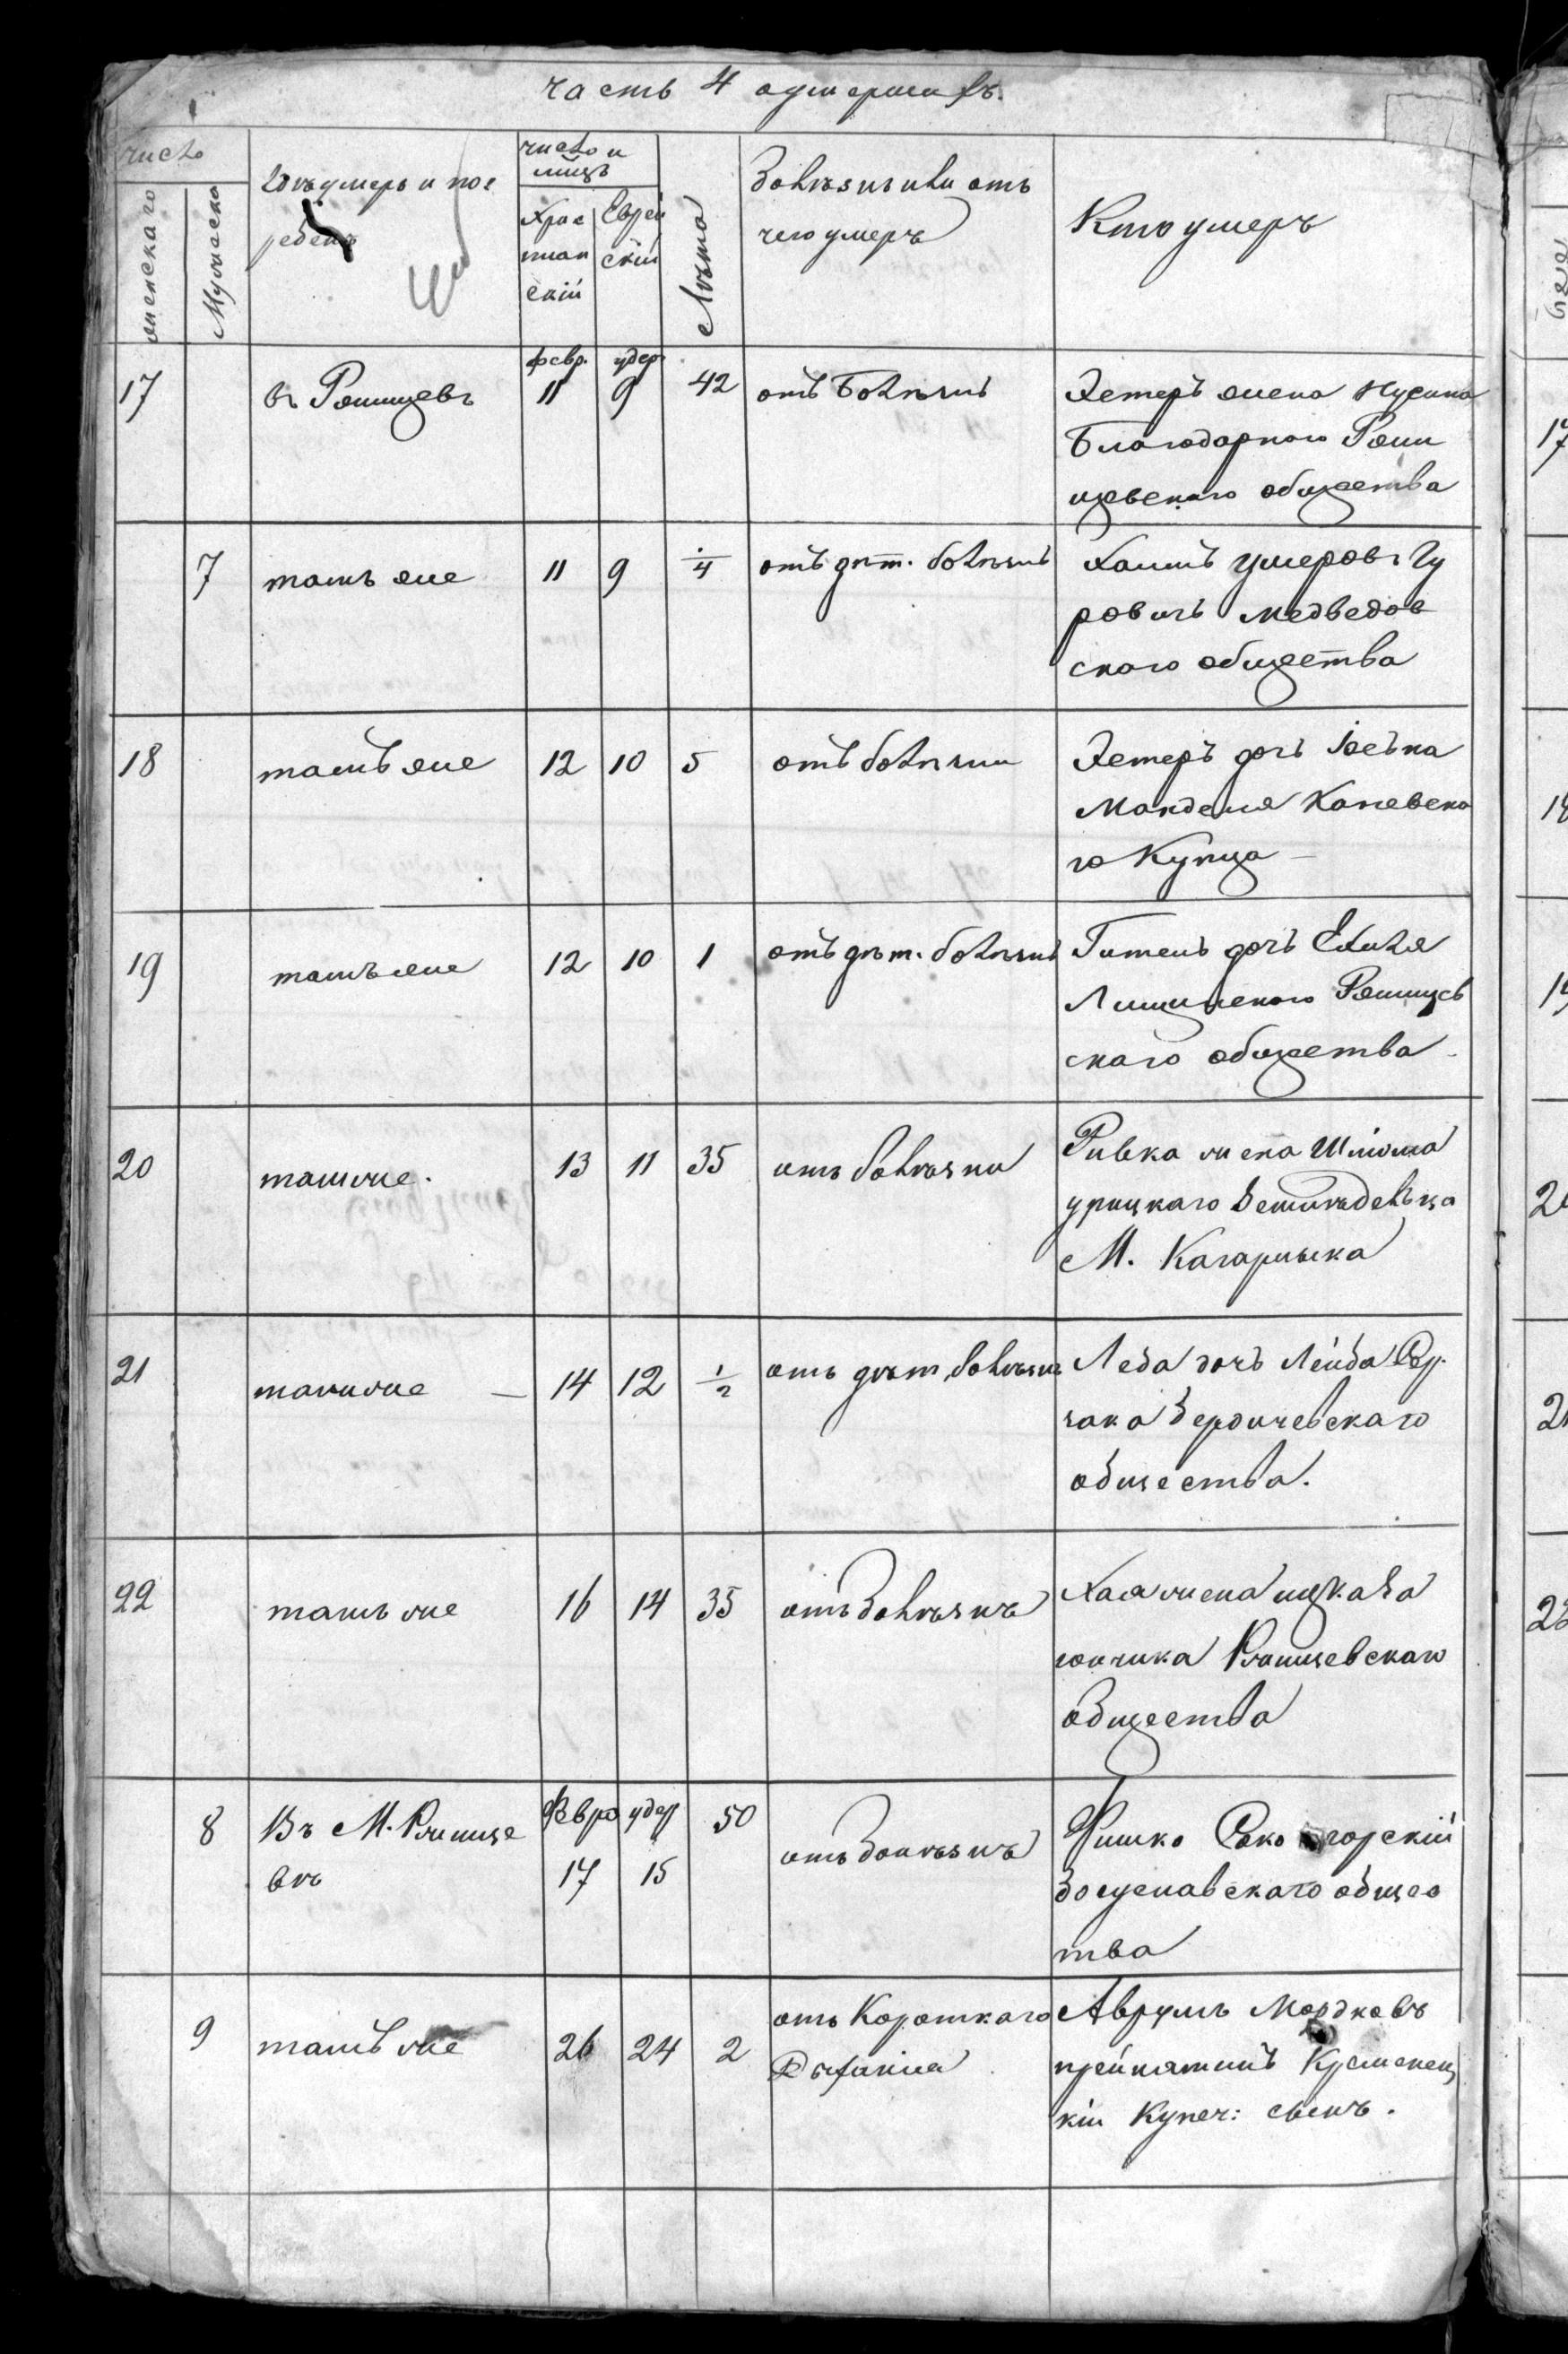 часть 4 о умершихъ.
число
женскаго
Мужеска
Где умеръ и пог
ребенъ
число и
мѣцъ
Хрис
тиан
скій
Еврей
скій
Лѣта
Болѣзнь или отъ
чего умеръ
Кто умеръ
17 въ Ржищевъ февр. 11 удер 9 42 отъ Болѣзнь Эстеръ жена Нусина
Благодарного Ржи
щевскаго общества
7 тамъ же 11 9 1/4 отъ дѣт. болѣзнь Хаимъ Умеровъ Гу
ровичъ Медведов
ского общества
18 тамъ же 12 10 5 отъ болѣзни Эстеръ дочь Іосъка
Манделя Каневска
го Купца
19 тамъ же 12 10 1 отъ дѣт. болѣзнь Гитель дочь Ехиля
Лищинского Ржищев
скаго общества
20 тамже. 13 11 35 отъ болѣзни Ривка жена Шліома
урицкаго Земледельца
М. Кагарлыка
21 тамже 14 12 1/2 отъ дѣт. болѣзнь Леда дочь Лейба
Бердичевскаго
общества.
22 тамъ же 16 14 35 отъ Болѣзнь Хая жена ицка За
гончика Ржищевскаго
общества
8 Въ М. Ржище
въ Февра 17 удер 15 50 отъ Болѣзнь Фишко
Богуславскаго общес
тва
9 тамъ же 26 24 2 отъ Короткаго
Дыханія Аврумъ Мордковъ
Кременец
кій Купеч: сынъ.